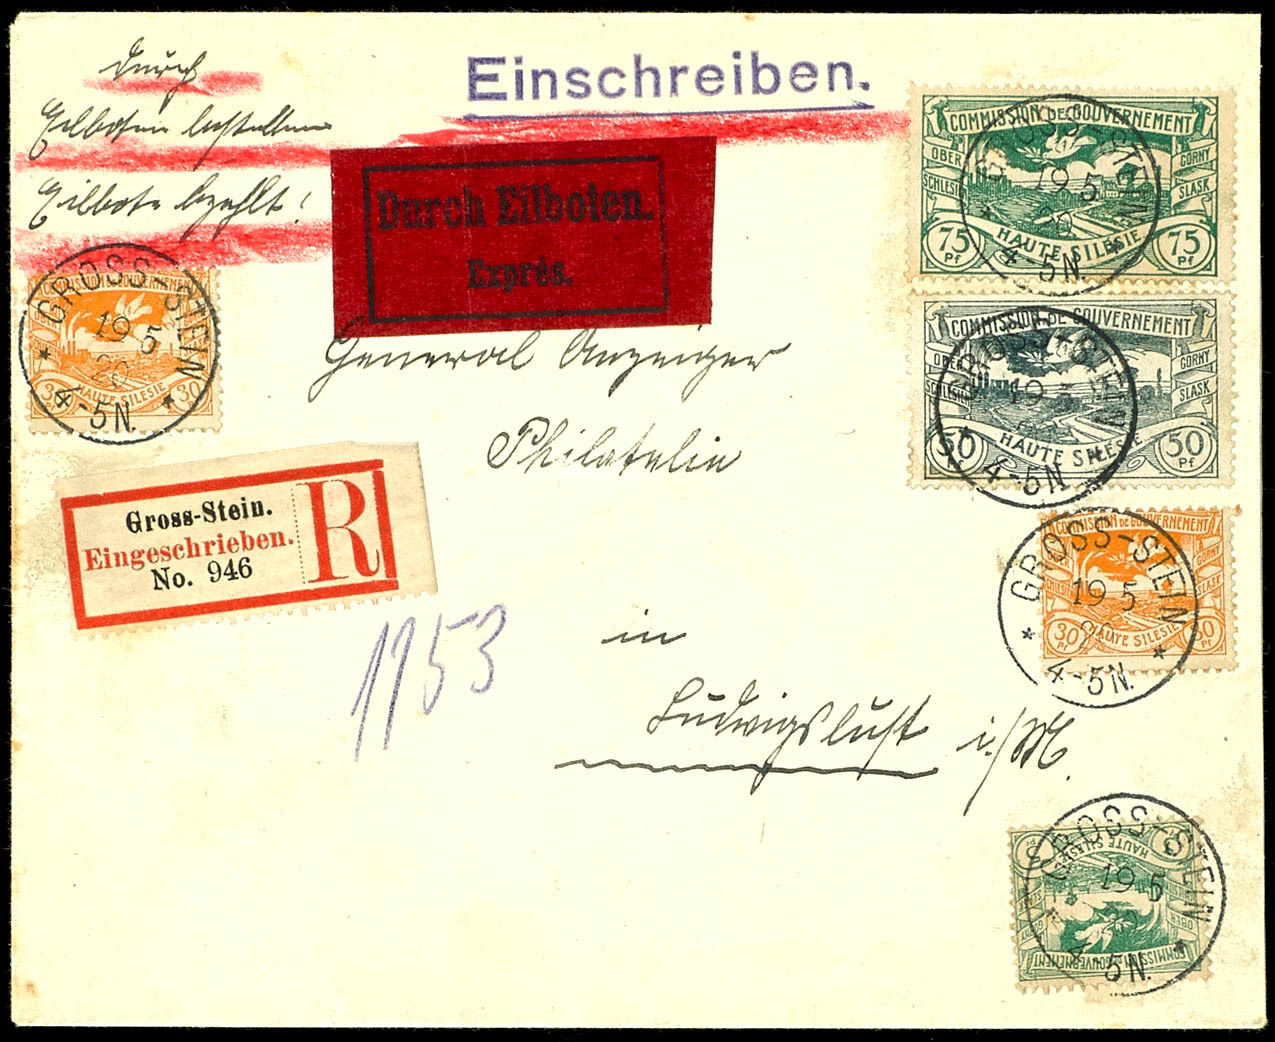 durch
Eilboten bestellen
Eilbote bezahlt!
Einschreiben.
Durch Eilboten.
Exprés.
COMMISSION DE GOUVERNEMENT
OBER SCHLESIEN
GÓRNY ŚLĄSK
HAUTE SILESIE
75 Pf 75 Pf
GROSS-STEIN
19 5
4-5N.
COMMISSION DE GOUVERNEMENT
OBER SCHLESIEN
GÓRNY ŚLĄSK
HAUTE SILESIE
50 50 Pf
GROSS-STEIN
19
4-5N
COMMISSION DE GOUVERNEMENT
HAUTE SILESIE
30 30
GROSS-STEIN
19 5
20
4-5N.
General Anzeiger
Philatelie
Gross-Stein.
Eingeschrieben.
No. 946
R
COMMISSION DE GOUVERNEMENT
GÓRNY ŚLĄSK
HAUTE SILESIE
30 Pf 30 Pf
GROSS-STEIN
19 5
4-5N.
1153
in
Ludwigslust i/M.
COMMISSION DE GOUVERNEMENT
OBER
HAUTE SILESIE
GROSS-STEIN
19 5
4-5N.